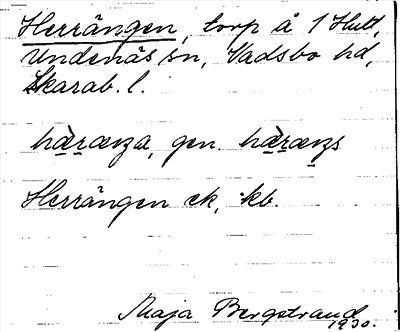 Herrängen, torp å 1 Hult,
Undenäs sn, Vadsbo hd,
Skarab. l.
hæ̀rænza, gen. hæ̀rænzs
Herrängen ek, kb.
Maja Bergstrand
1930